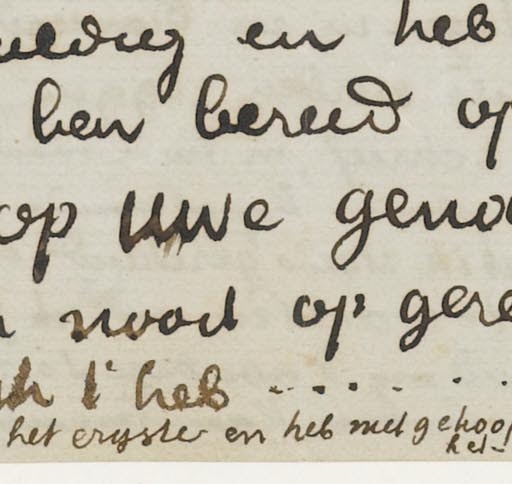 en heb
ben bereid op
op uwe geno
nood op gere
ik 't heb - . . . . - . .
het eryste en heb met gehoop
het-